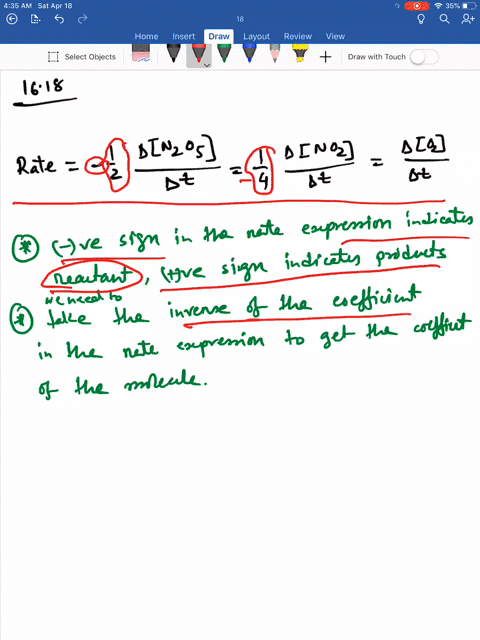 4:35 AM Sat Apr 18
35%
16
Home Insert Draw Layout Review View
Select Objects
Draw with Touch
16.18
Rate = - 1/2 Δ[N2O5]/Δt = 1/4 Δ[NO2]/Δt = Δ[O2]/Δt
* (-)ve sign in the rate expression indicates
reactant, (+)ve sign indicates products
we need to
* take the inverse of the coefficient
in the rate expression to get the coeffient
of the molecule.